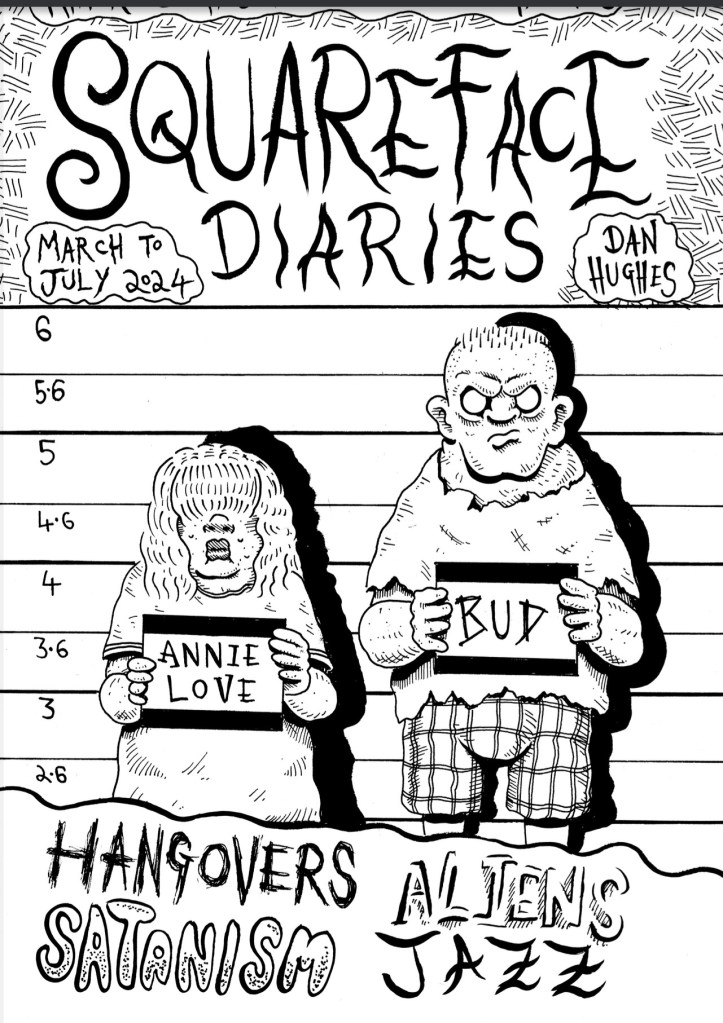 SQUAREFACE
DIARIES
MARCH TO
JULY 2024
DAN
HUGHES
6
5·6
5
4·6
4
3·6
3
2·6
ANNIE
LOVE
BUD
HANGOVERS
ALIENS
SATANISM
JAZZ